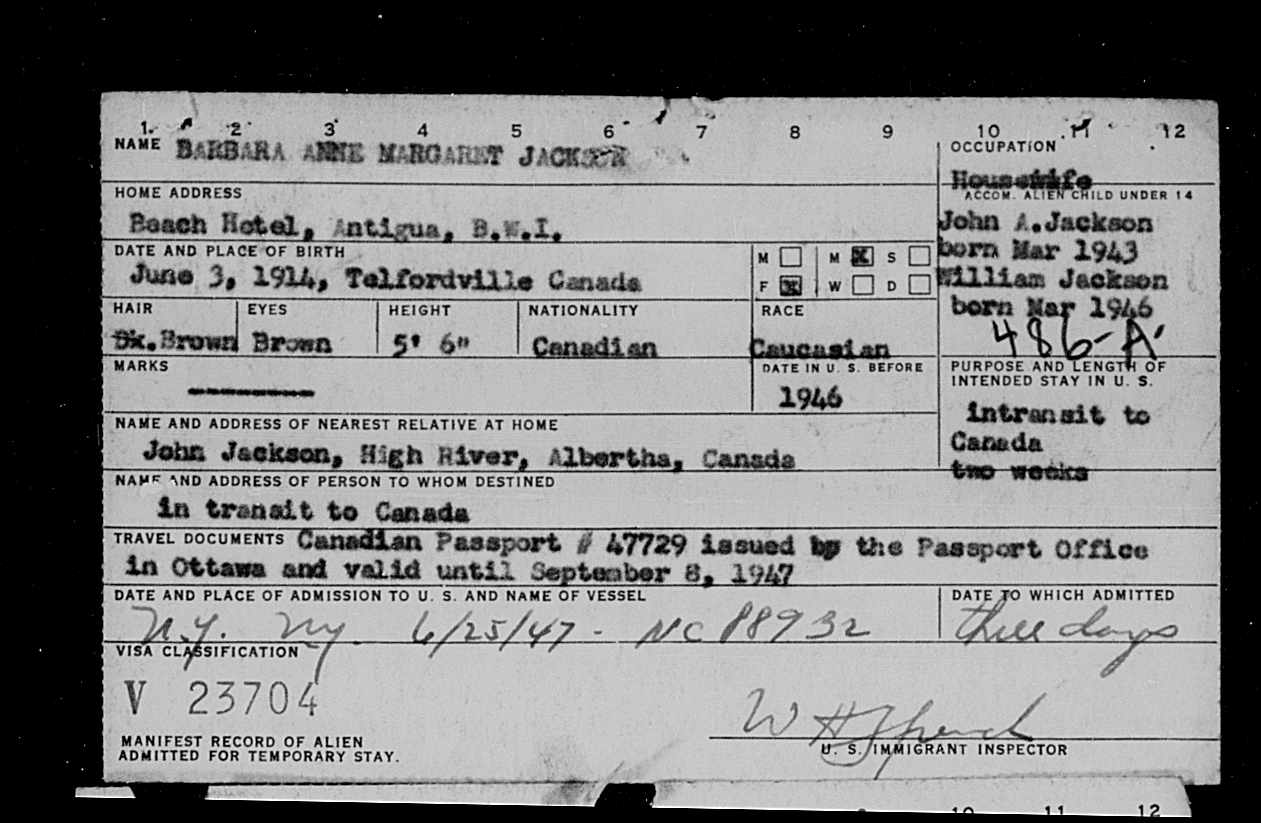 1. 2 3 4 5 6 7 8 9 10 11 12
NAME BARBARA ANNE MARGARET JACKSON
OCCUPATION
Housewife
HOME ADDRESS
Beach Hotel, Antigua, B.W.I.
ACCOM. ALIEN CHILD UNDER 14
John A.Jackson
born Mar 1943
William Jackson
born Mar 1946
486-A
DATE AND PLACE OF BIRTH
June 3, 1914, Telfordville Canada
M M X S
F X W D
HAIR EYES HEIGHT NATIONALITY RACE
Dk.Brown Brown 5' 6" Canadian Caucasian
MARKS
DATE IN U. S. BEFORE
1946
PURPOSE AND LENGTH OF
INTENDED STAY IN U. S.
intransit to
Canada
two weeks
NAME AND ADDRESS OF NEAREST RELATIVE AT HOME
John Jackson, High River, Albertha, Canada
NAME AND ADDRESS OF PERSON TO WHOM DESTINED
in transit to Canada
TRAVEL DOCUMENTS Canadian Passport # 47729 issued by the Passport Office
in Ottawa and valid until September 8, 1947
DATE AND PLACE OF ADMISSION TO U. S. AND NAME OF VESSEL
N.Y. NY. 6/25/47 - NC 88932
DATE TO WHICH ADMITTED
three days
VISA CLASSIFICATION
V 23704
MANIFEST RECORD OF ALIEN
ADMITTED FOR TEMPORARY STAY.
W H
U. S. IMMIGRANT INSPECTOR
10 11 12